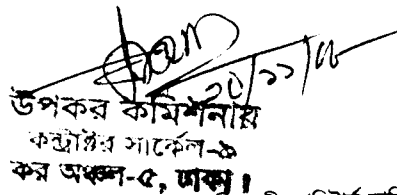 ২০/১১/০৮
উপকর কমিশনার
কন্ট্রাক্টর সার্কেল-৯
কর অঞ্চল-৫, ঢাকা।